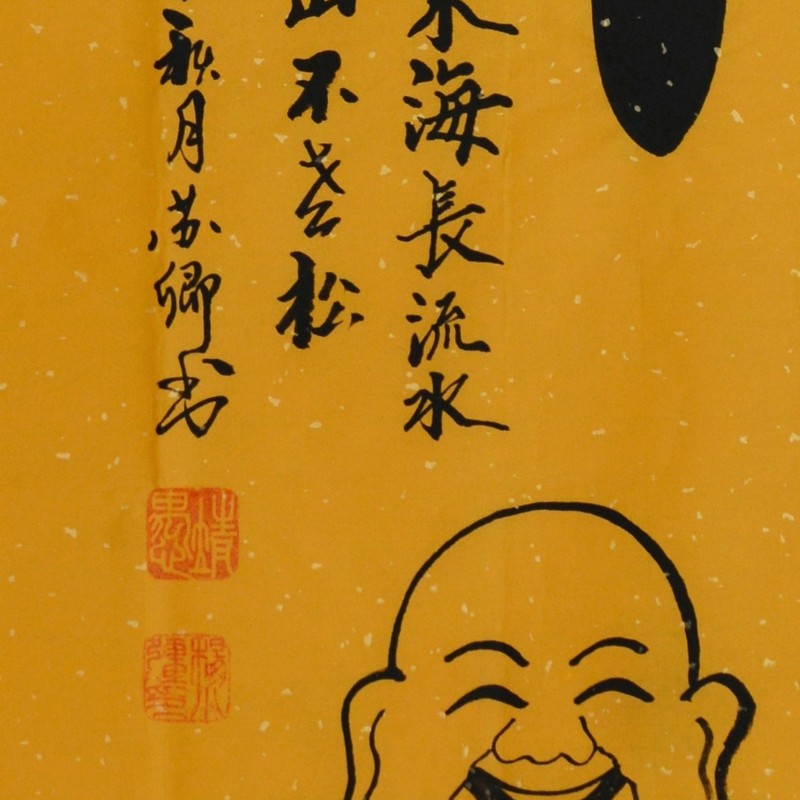 東海長流水
山不老松
秋月苏卿书